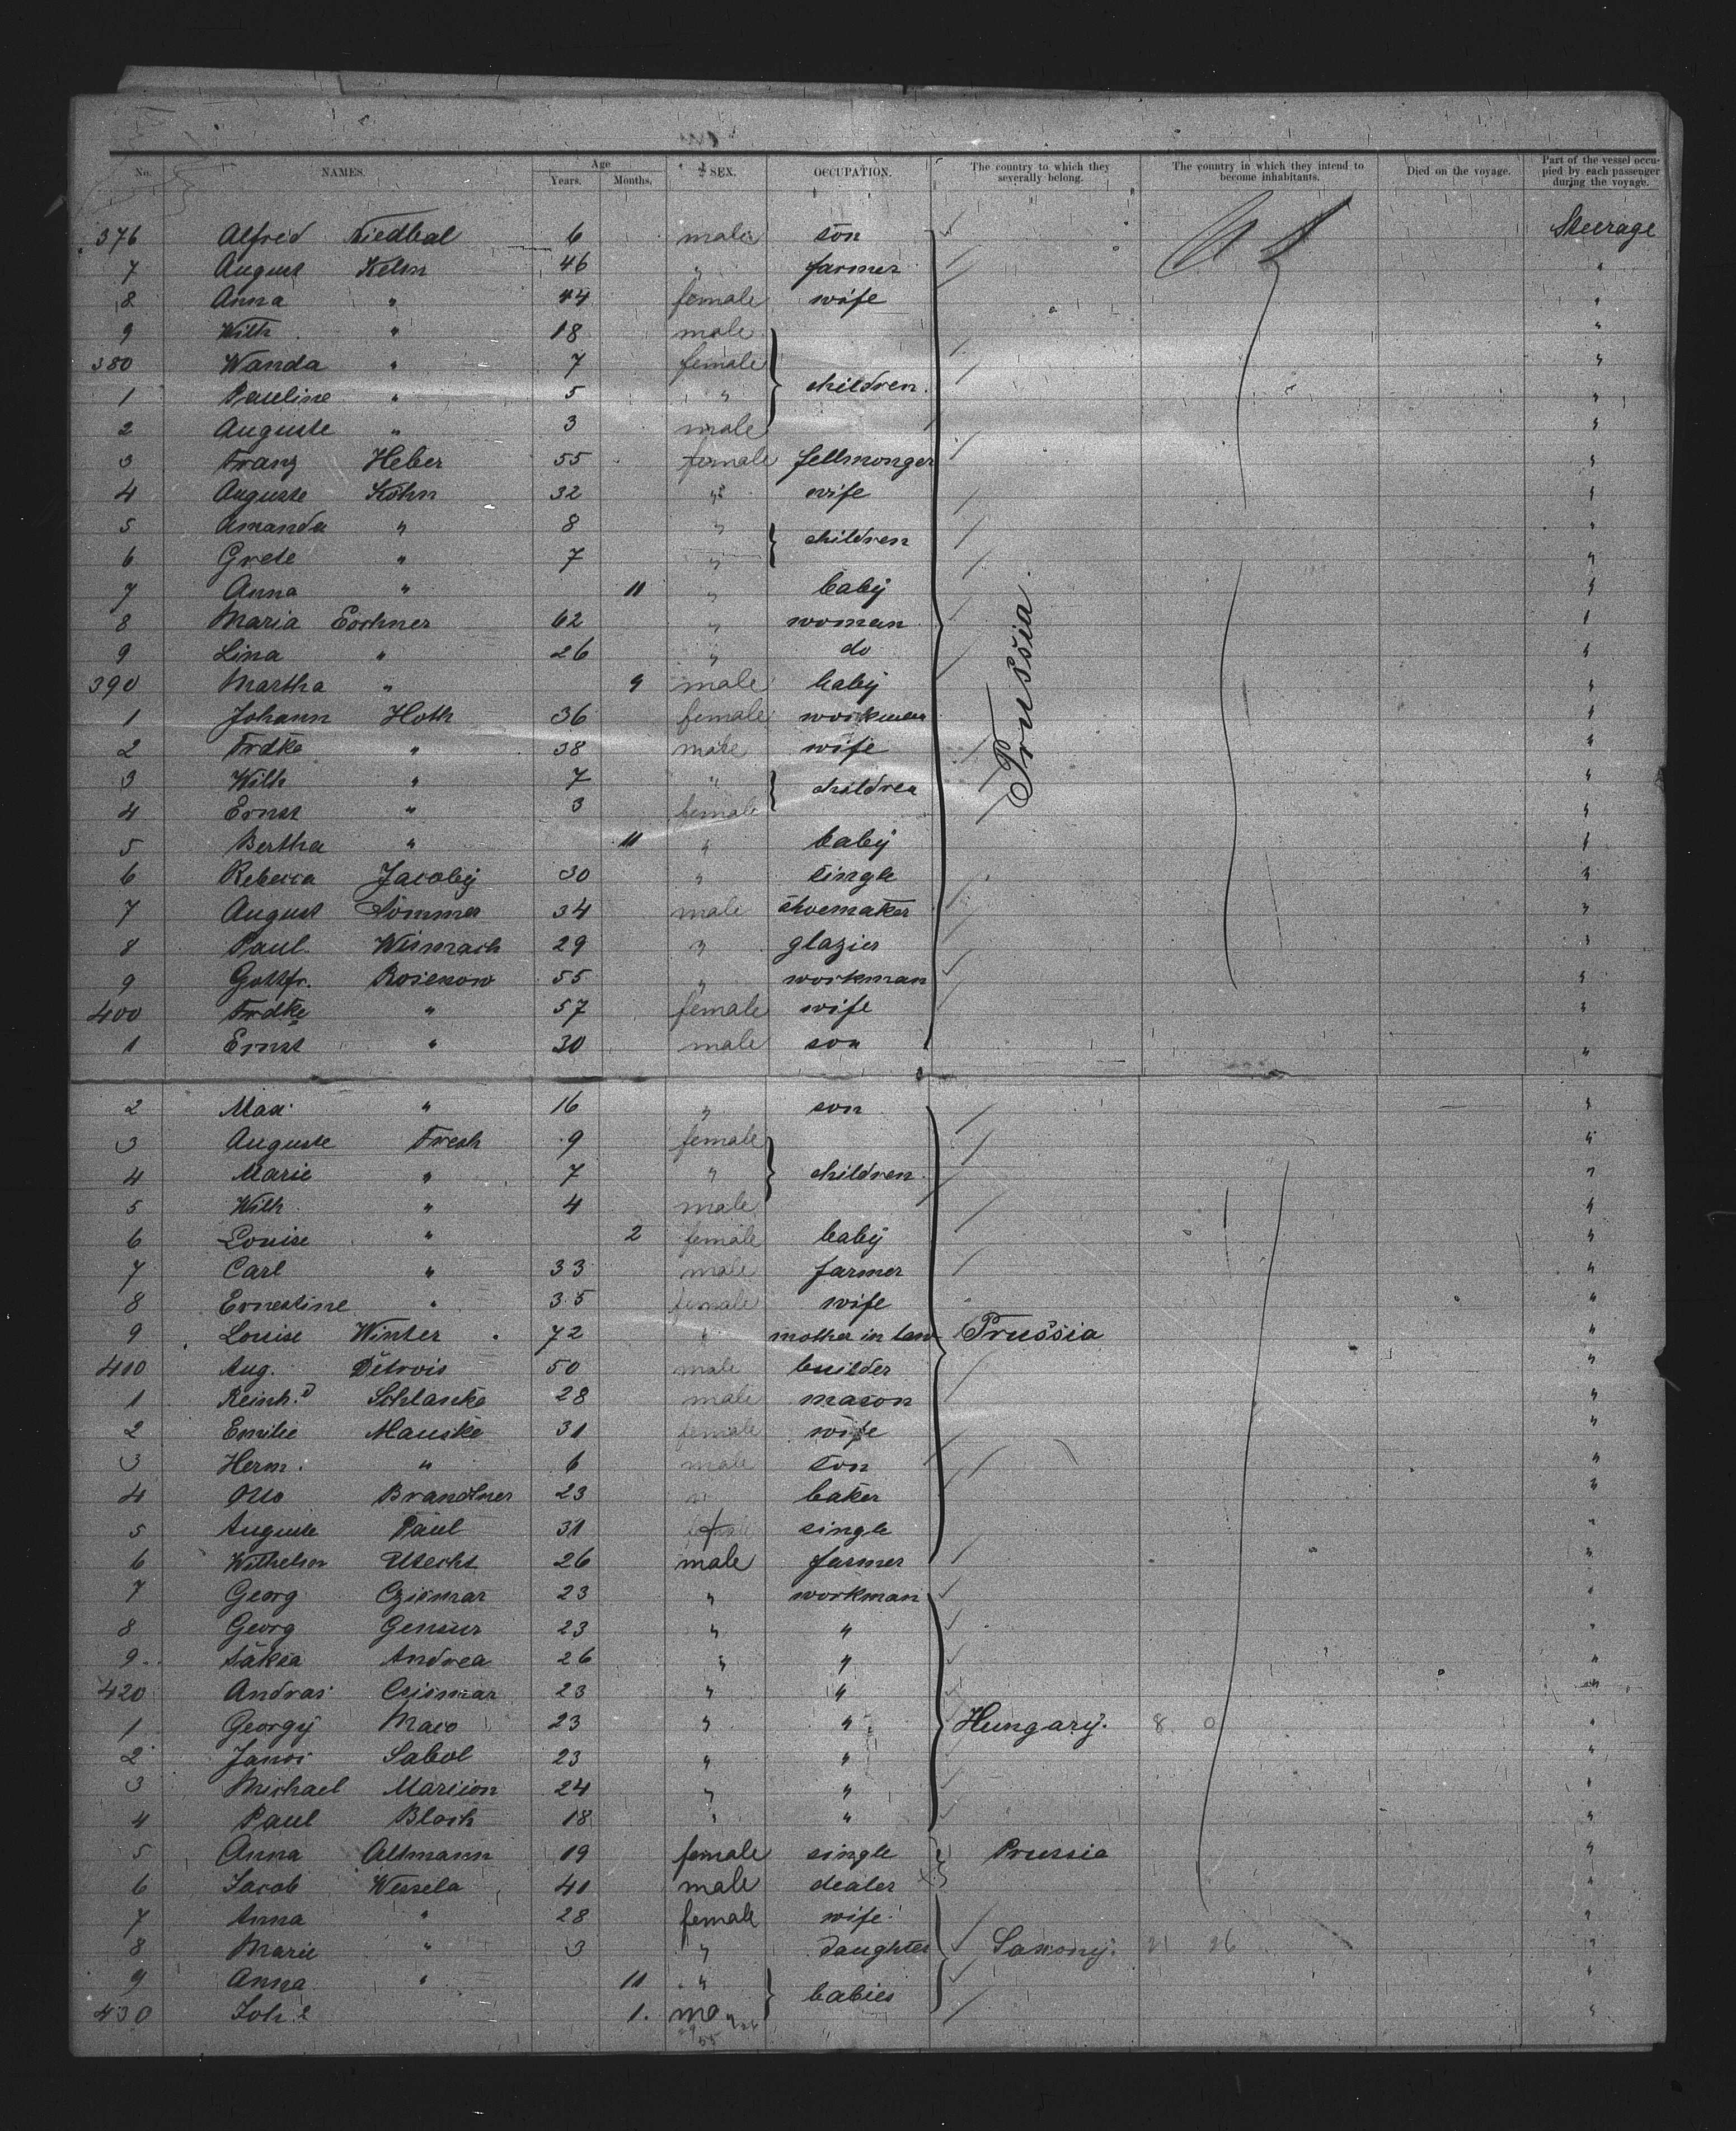 No. NAMES. Age Years. Months. SEX. OCCUPATION. The country to which they severally belong. The country in which they intend to become inhabitants. Died on the voyage. Part of the vessel occupied by each passenger during the voyage.
376 Alfred 6 male son U S Steerage
7 August Kelm 46 " farmer "
8 Anna " 44 female wife "
9 Wilh. " 18 male "
380 Wanda " 7 female "
1 Pauline " 5 " children. "
2 Auguste " 3 male "
3 Franz Heber 55 female fellmonger "
4 Auguste Köhn 32 " wife "
5 Amanda " 8 " "
6 Grete " 7 " children "
7 Anna " 11 " baby "
8 Maria 62 " woman "
9 Lina " 26 " do "
390 Martha " 9 male baby Prussia "
1 Johann Hoth 36 female workman "
2 Frdke " 38 male wife "
3 Wilh " 7 " children "
4 Ernst " 3 female "
5 Bertha " 11 " baby "
6 Rebecca Jacoby 30 " single "
7 August Sommer 34 male shoemaker "
8 Paul 29 " glazier "
9 Gottfr. Rosenow 55 " workman "
400 Frdke " 57 female wife "
1 Ernst " 30 male son "
2 Max " 16 " son "
3 Auguste 9 female "
4 Marie " 7 " children "
5 Wilh. " 4 male "
6 Louise " 2 female baby "
7 Carl " 33 male farmer "
8 Ernestine " 35 female wife "
9 Louise Winter 72 " mother in law Prussia "
410 Aug. Détrois 50 male builder "
1 Reinh.d 28 male mason "
2 Emilie Manske 31 female wife "
3 Herm. " 6 male son "
4 Otto Brandtner 23 " baker "
5 Auguste Paul 31 f single "
6 Wilhelm Utecht 26 male farmer "
7 Georg Czismar 23 " workman "
8 Georg 23 " " "
9 Andrea 26 " " "
420 Andras Czismar 23 " " "
1 Georgy Maco 23 " " Hungary. 8 0 "
2 Janos Sabol 23 " " "
3 Michael 24 " " "
4 Paul Bloch 18 " " "
5 Anna Altmann 19 female single Prussia "
6 Jacob Wessela 41 male dealer "
7 Anna " 28 female wife "
8 Marie " 3 " daughter Saxony. 21 26 "
9 Anna " 11 " babies "
430 1. "
55